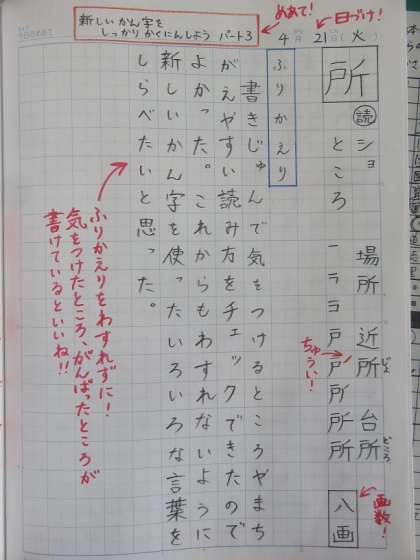 新しいかん字を
しっかりかくにんしよう パート3
めあて!
日づけ!
4 21 (火)
所
読 ショ 場所 近所 台所
じょ
どころ
ところ
ちゅうい!
八画
画数!
ふりかえり
書きじゅんで気をつけるところやまち
がえやすい読み方をチェックできたので
よかった。これからもわすれないように
新しいかん字を使ったいろいろな言葉を
しらべたいと思った。
ふりかえりをわすれずに!
気をつけたところ、がんばったところが
書けているといいね!!